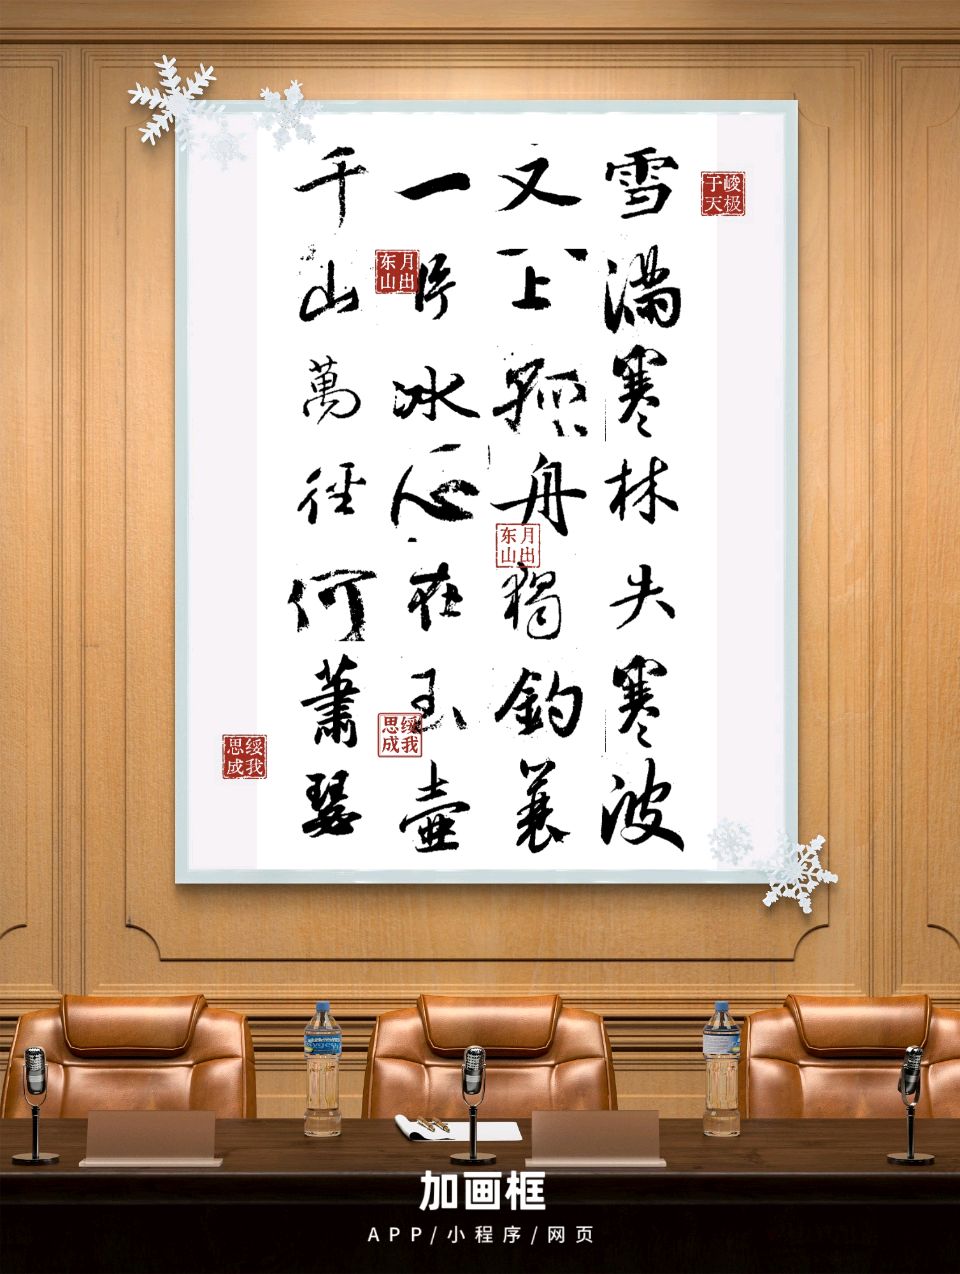 雪滿寒林失寒波
又上孤舟獨釣蓑
一片冰心在玉壺
千山萬径何蕭瑟
峻极于天
月出东山
月出东山
绥我思成
绥我思成
加画框
APP/小程序/网页